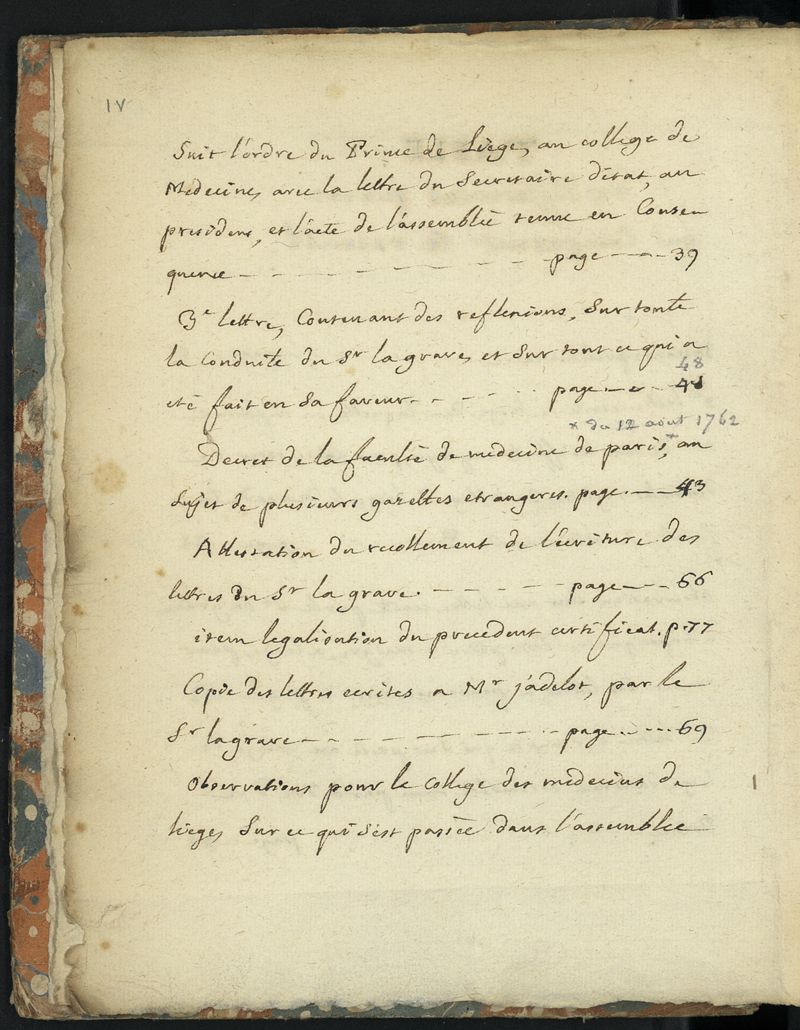 IV
Suit l'ordre du Prince de Liège, au college de
Medecine, avec la lettre du Secretaire d'etat, au
president, et l'acte de l'assemblée tenue en Conse-
quence - - - - - - - - page - - - 39
3e lettre, Contenant des reflexions, Sur toute
la Conduite du Sr la grave, et Sur tout ce qui a
48
eté fait en Sa faveur - - - - - page - - -
* du 12 aout 1762
Decret de la faculté de medecine de paris,* au
Sujet de plusieurs gazettes etrangeres. page. - - 43
Attestation du recollement de l'écriture des
lettres du Sr la grave. - - - - - page - - - 66
item legalisation du precedent certificat. p. 77
Copie des lettres ecrites a Mr jadelot, par le
Sr la grave - - - - - - - - page - - - 69
Observations pour le College des medecins de
liege, Sur ce qui s'est passée dans l'assemblée